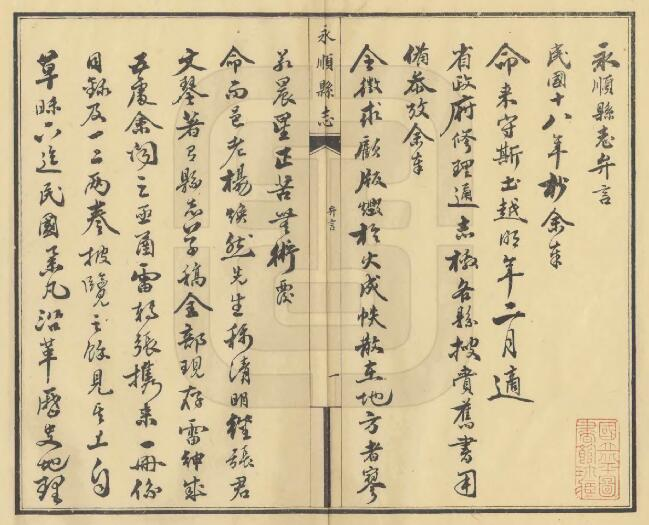 永順縣志弁言
民國十八年秋余奉
命来守斯土越明年二月適
省政府修理通志檄各縣搜賫舊書用
備叅攷余奉
令徵求顧版燬於火成帙散在地方者寥
永順縣志
弁言
一
若晨星正苦無術覆
命而邑老楊煥然先生称清明經張君
文琴著有縣志草稿全部現存雷紳成
五處余詢之亟函雷転張携来一冊係
目錄及一二兩卷披覽之餘見其上自
草昧下迄民國業凡沿革歷史地理